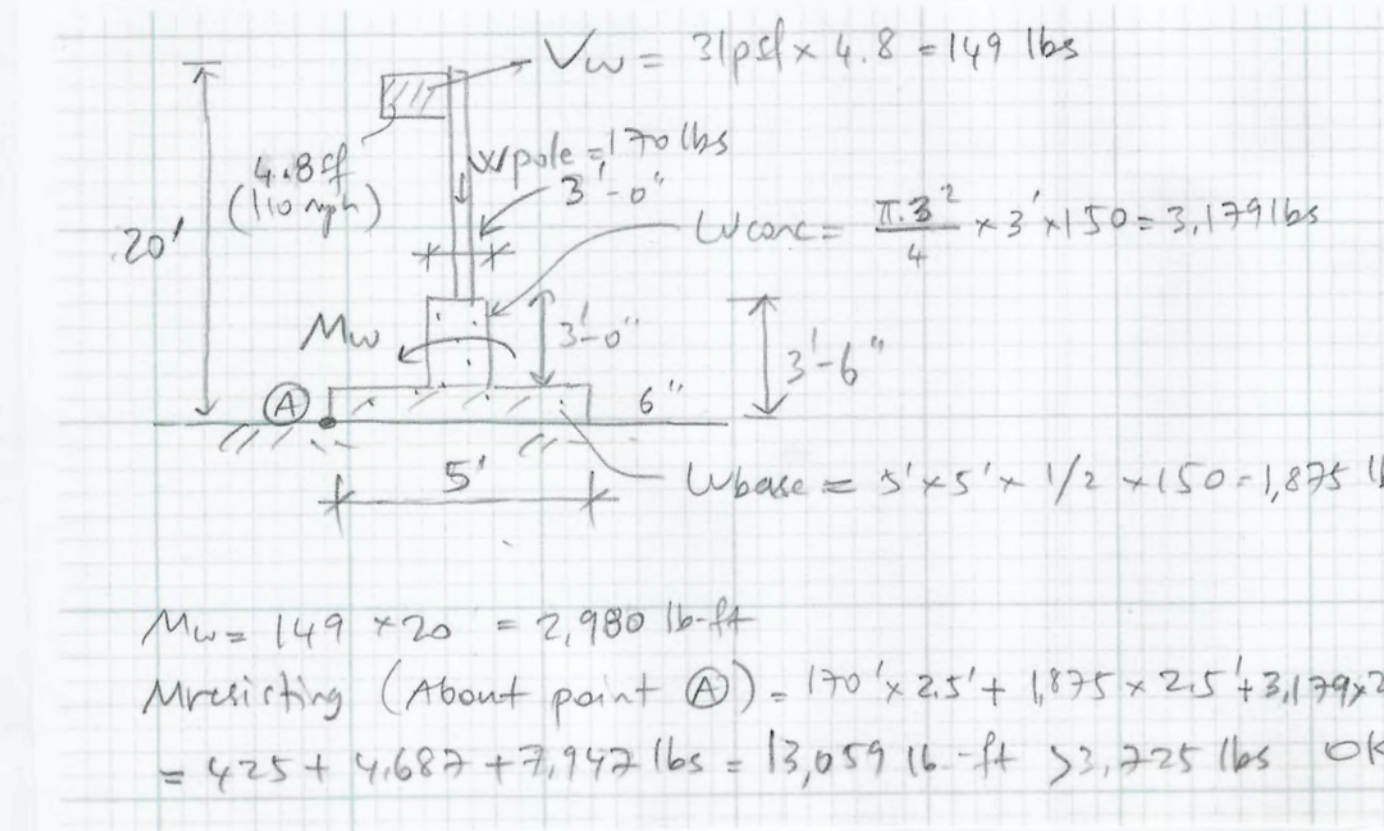 Vw = 31psf x 4.8 = 149 lbs
Wpole = 170 lbs
4.8 sf
(110 mph)
3'-0"
20'
Wconc = π.3²/4 x 3' x 150 = 3,179 lbs
Mw
3'-0"
3'-6"
A
6"
5'
Wbase = 5' x 5' x 1/2 x 150 = 1,875 lb
Mw = 149 x 20 = 2,980 lb-ft
Mresisting (About point A) = 170' x 2.5' + 1,875 x 2.5' + 3,179 x 2
= 425 + 4,687 + 7,947 lbs = 13,059 lb-ft > 3,725 lbs OK